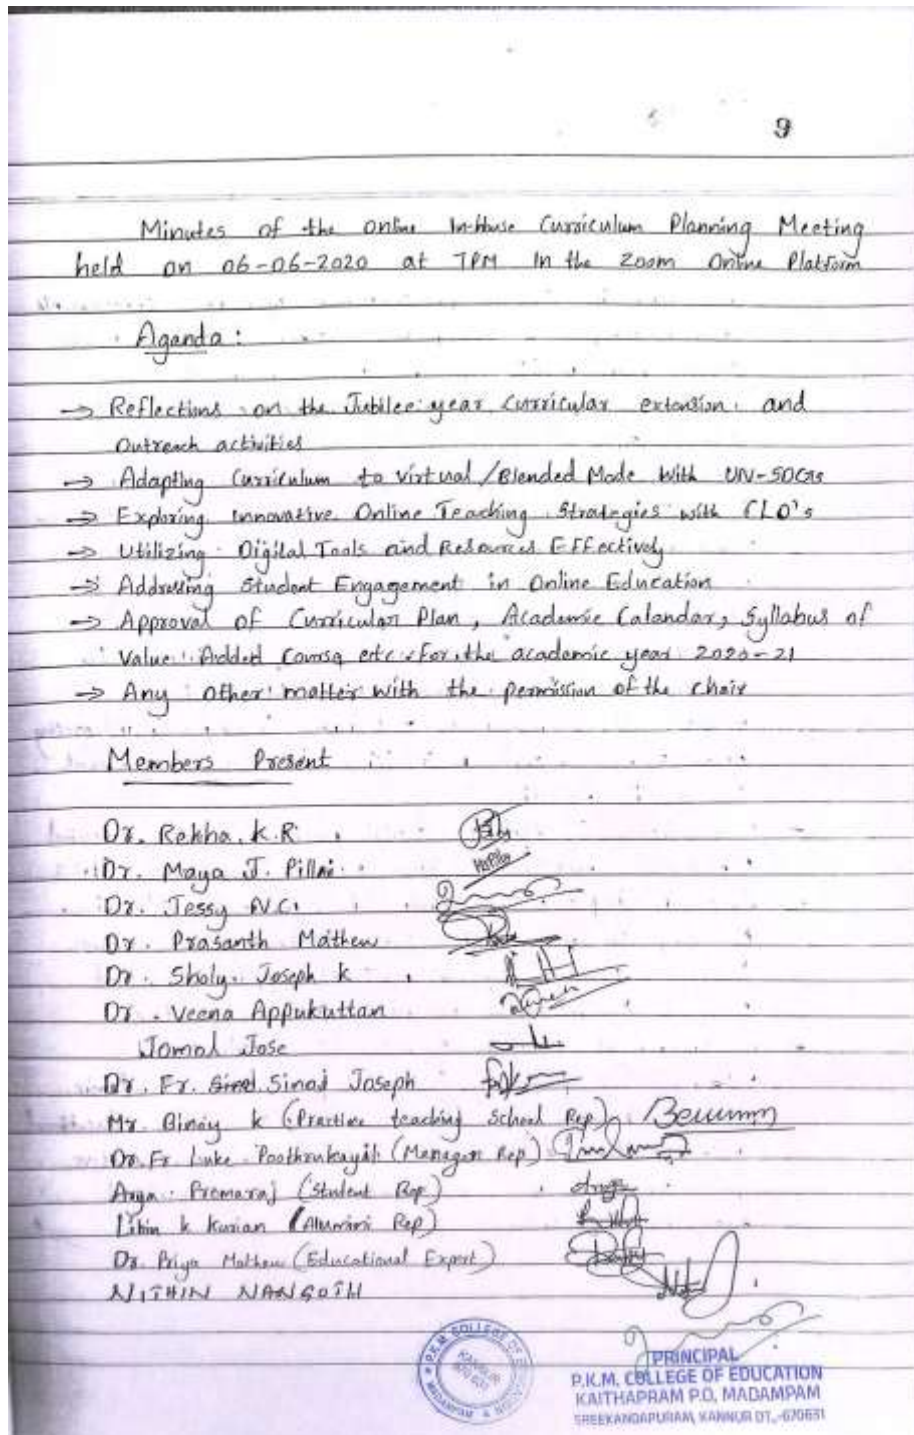 9
Minutes of the online In-House Curriculum Planning Meeting
held on 06-06-2020 at 7PM In the Zoom Online Platform
Aganda :
→ Reflections on the Jubilee year Curricular extension and
Outreach activities
→ Adapting Curriculum to virtual/Blended Mode With UN-SDGs
→ Exploring innovative Online Teaching Strategies with CLO's
→ Utilizing Digital Tools and Resources Effectively
→ Addressing Student Engagement in Online Education
→ Approval of Curricular Plan, Academic Calandar, Syllabus of
Value Added Course etc for the academic year 2020-21
→ Any other matter with the permission of the chair
Members Present
Dr. Rekha. K.R
Dr. Maya J. Pillai
Dr. Jessy N.C.
Dr. Prasanth Mathew
Dr. Sholy Joseph K
Dr. Veena Appukuttan
Jomol Jose
Dr. Fr. Sinoj Joseph
Mr. Binoy K (Practice teaching School Rep)
Dr. Fr. Luke Poothrukayil (Manager Rep)
Arya Premaraj (Student Rep)
Libin K Kurian (Alumini Rep)
Dr. Priya Mathew (Educational Expert)
NITHIN NANGOTH
P.K.M. COLLEGE OF EDUCATION
MADAMPAM
KANNUR
670 631
PRINCIPAL
P.K.M. COLLEGE OF EDUCATION
KAITHAPRAM P.O, MADAMPAM
SREEKANDAPURAM, KANNUR DT.,-670631